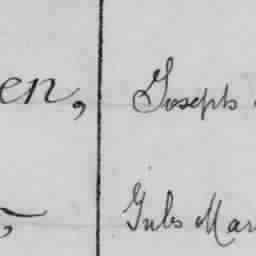 en, Joseph
Jules Mar